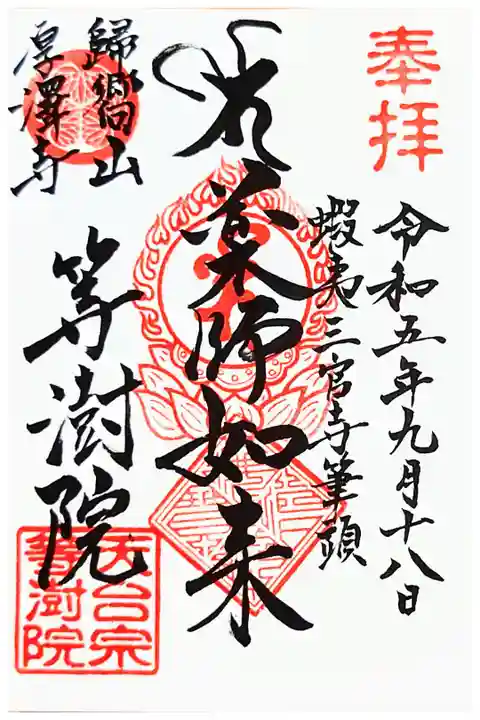 奉拝
令和五年九月十八日
蝦夷三官寺筆頭
薬師如来
歸嚮山
厚澤寺
等澍院
天台宗
等澍院